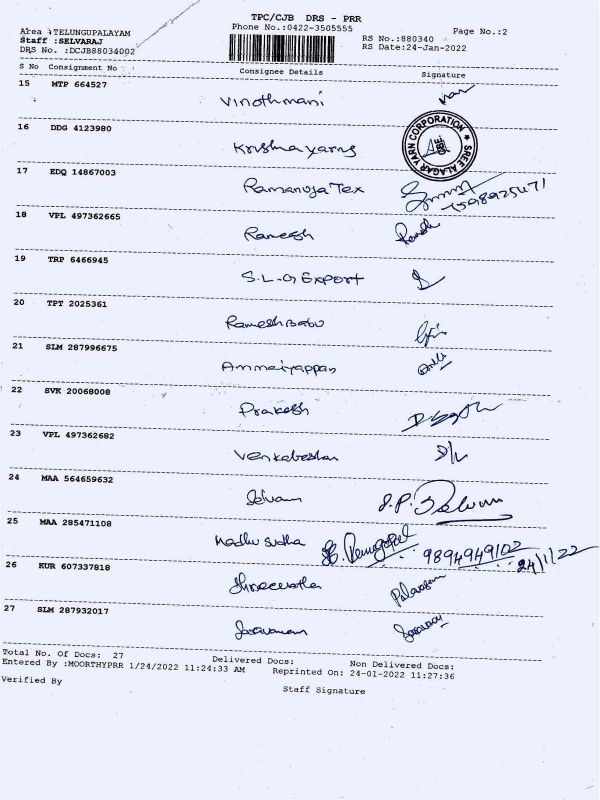 TPC/CJB DRS - PRR
Phone No.:0422-3505555
Page No.:2
Area :TELUNGUPALAYAM
Staff :SELVARAJ
DRS No. :DCJB88034002
RS No.:880340
RS Date:24-Jan-2022
S No Consignment No Consignee Details Signature
15 MTP 664527
Vinothmani
16 DDG 4123980
Krishna yarns
SREE ALAGAR YARN CORPORATION
CBE
17 EDQ 14867003
Ramanuja Tex
7598925471
18 VPL 497362665
Ramesh
19 TRP 6466945
S.L.G Export
20 TPT 2025361
RameshBabu
21 SLM 287996675
Ammaiyappan
22 SVK 20068008
Prakash
23 VPL 497362682
Venkateshan
24 MAA 564659632
Selvam
S.P. Selvam
25 MAA 285471108
Madhu sudha
9894949102
24/1/22
26 KUR 607337818
27 SLM 287932017
Saravanan
Total No. Of Docs: 27 Delivered Docs: Non Delivered Docs:
Entered By :MOORTHYPRR 1/24/2022 11:24:33 AM Reprinted On: 24-01-2022 11:27:36
Verified By Staff Signature